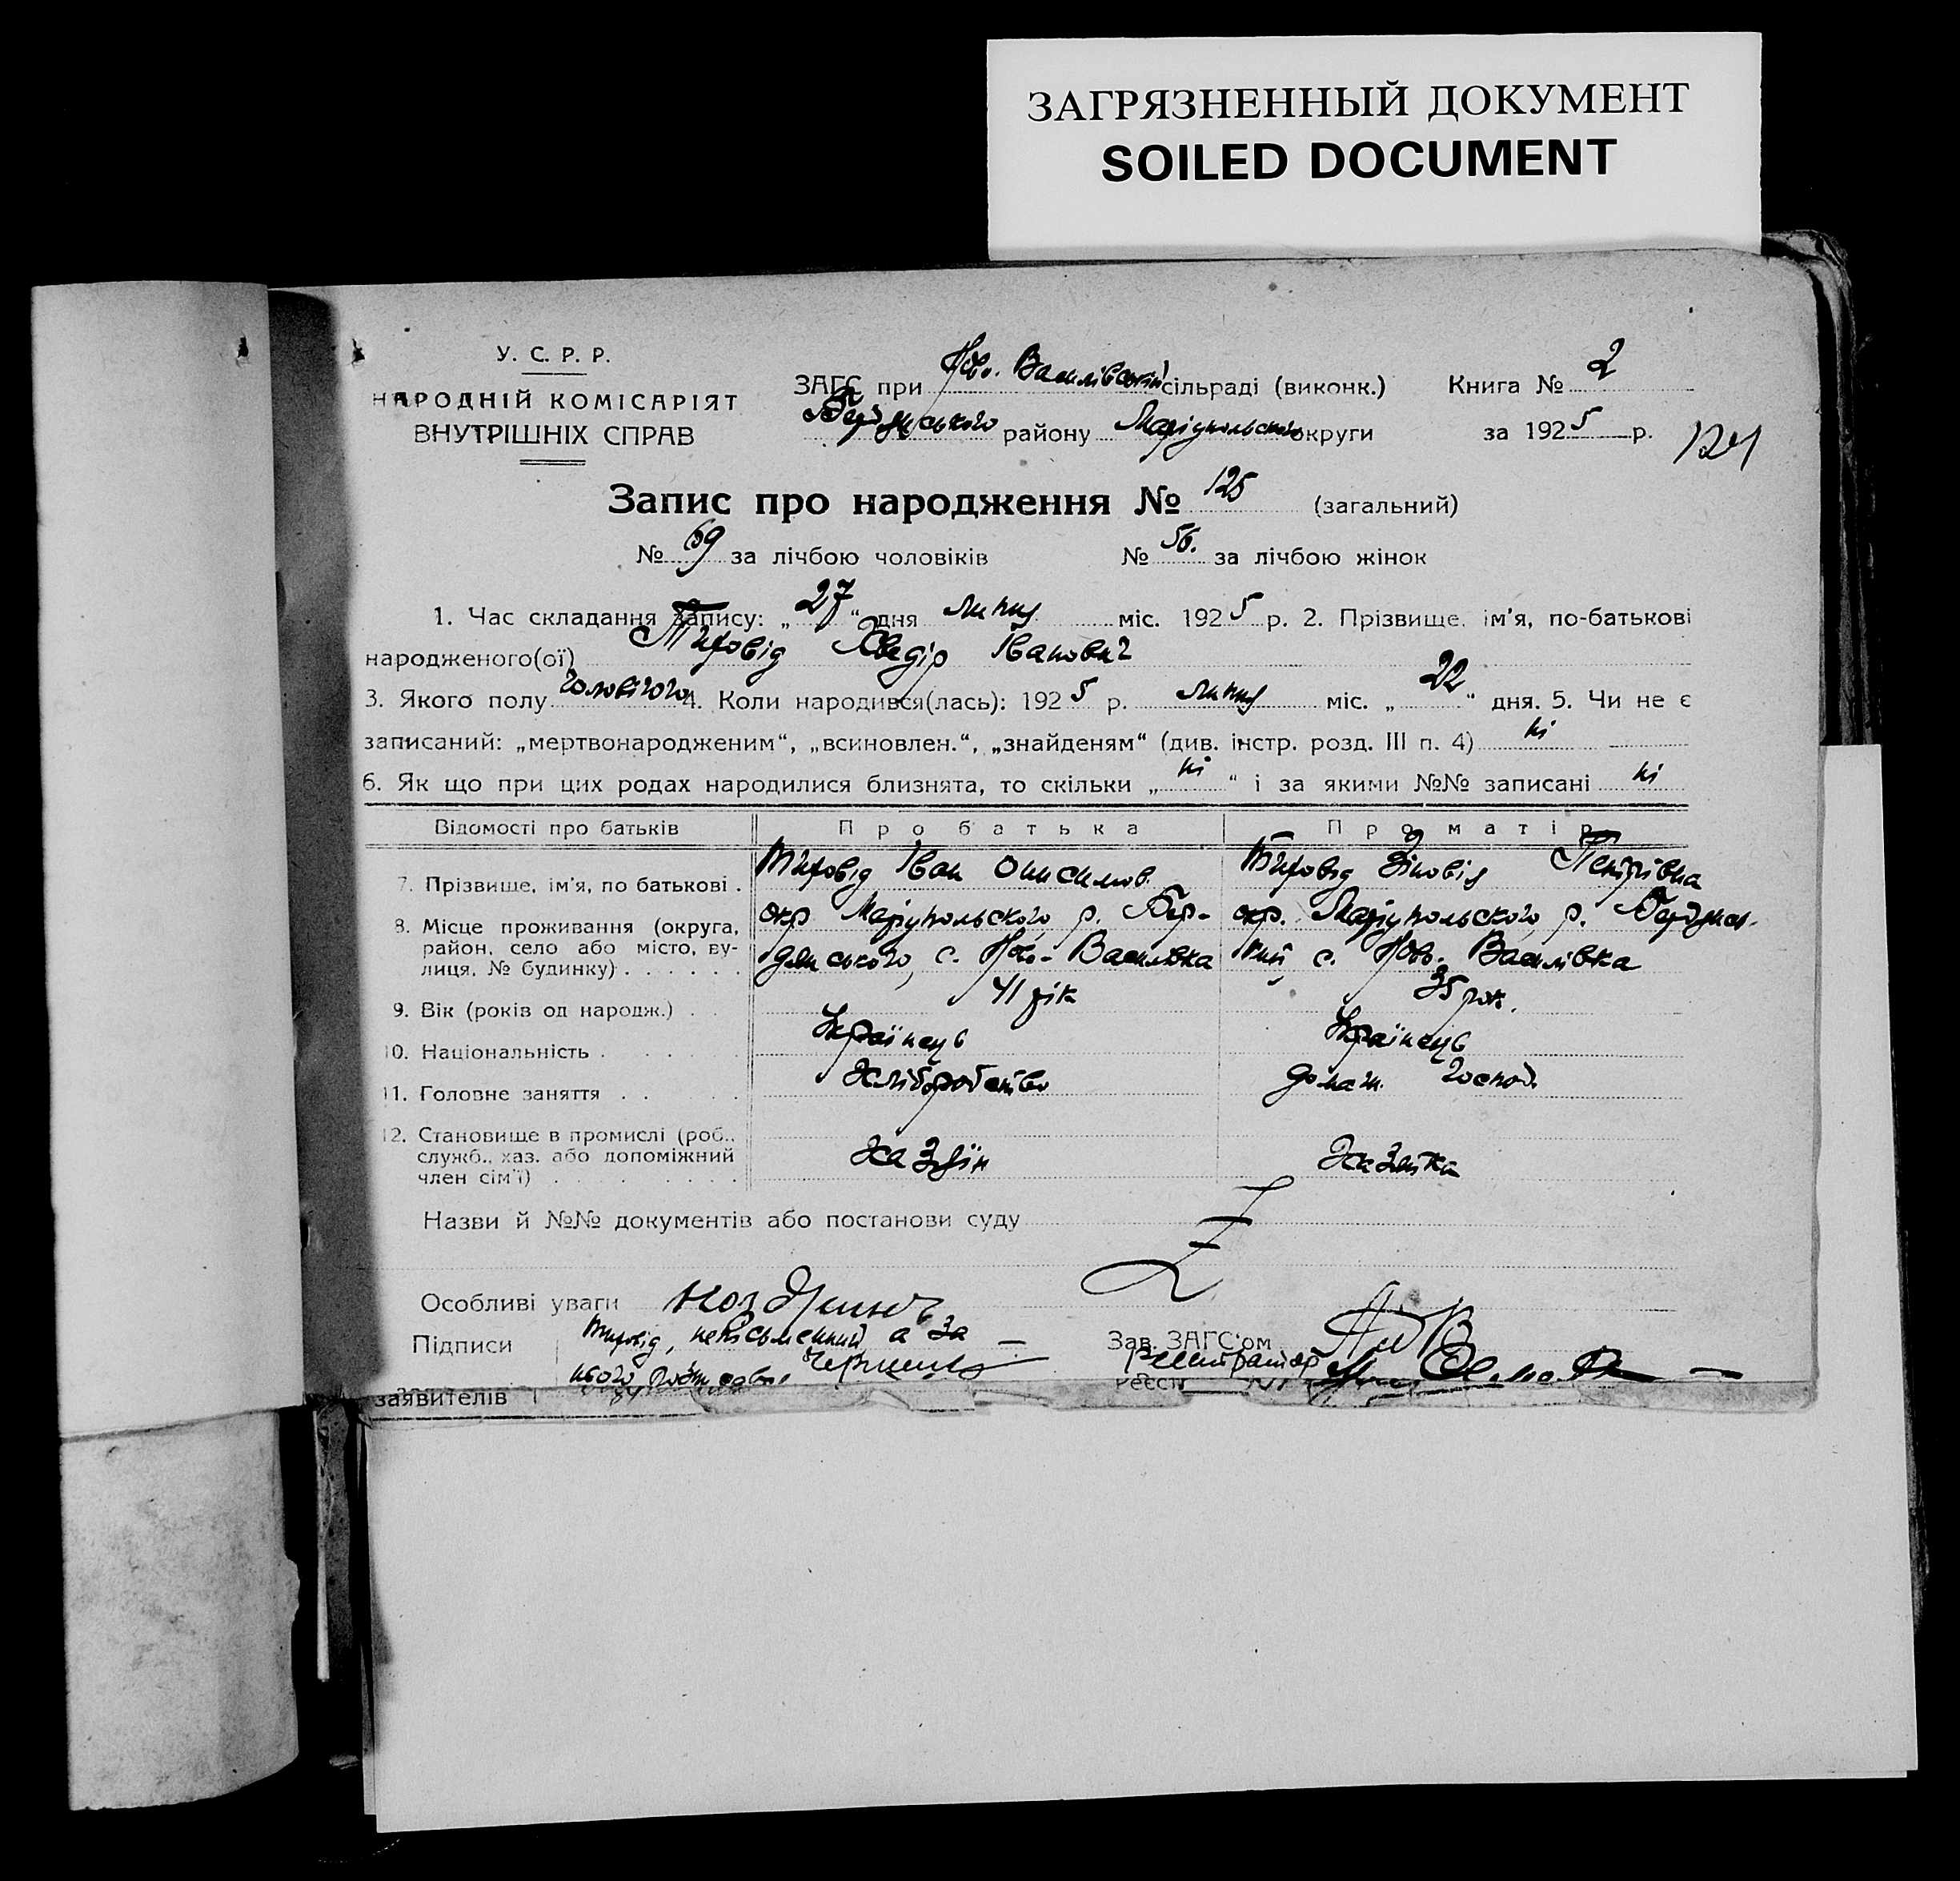 ЗАГРЯЗНЕННЫЙ ДОКУМЕНТ
SOILED DOCUMENT
У. С. Р. Р.
НАРОДНІЙ КОМІСАРІЯТ
ВНУТРІШНІХ СПРАВ
ЗАГС при Ново. Василівській сільраді (виконк.) Книга № 2
Бердянського району Маріупольської округи за 1925 р. 124
Запис про народження № 125 (загальний)
№ 69 за лічбою чоловіків № 56. за лічбою жінок
1. Час складання запису: „27“ дня липня міс. 1925 р. 2. Прізвище, ім’я, по-батькові
народженого(ої) Хведір Іванович
3. Якого полу чоловічого 4. Коли народився(лась): 1925 р. липня міс. „22“ дня. 5. Чи не є
записаний: „мертвонародженим“, „всиновлен.“, „знайденям“ (див. інстр. розд. III п. 4) ні
6. Як що при цих родах народилися близнята, то скільки „ні“ і за якими №№ записані ні
Відомості про батьків Про батька Про матір
7. Прізвище, ім’я, по батькові . Іван Онисимов. Зіновія Петрівна
8. Місце проживання (округа, окр Маріупольского, р. Бер- окр. Маріупольского, р. Бердянс-
район, село або місто, ву- дянського, с. Ново-Василівка кий с. Ново. Василівка
лиця, № будинку) . . . . . .
9. Вік (років од народж.) . . 41 рік 35 рок.
10. Національність . . . . Українець Українець
11. Головне заняття . . . . Хліборобство домаш. господ.
12. Становище в промислі (роб.,
служб., хаз. або допоміжний Хазяїн Хазяйка
член сім’ї) . . . . . . .
Назви й №№ документів або постанови суду
Особливі уваги
Підписи неписьменний, а за Зав. ЗАГС’ом
нього Реєстратор
заявителів